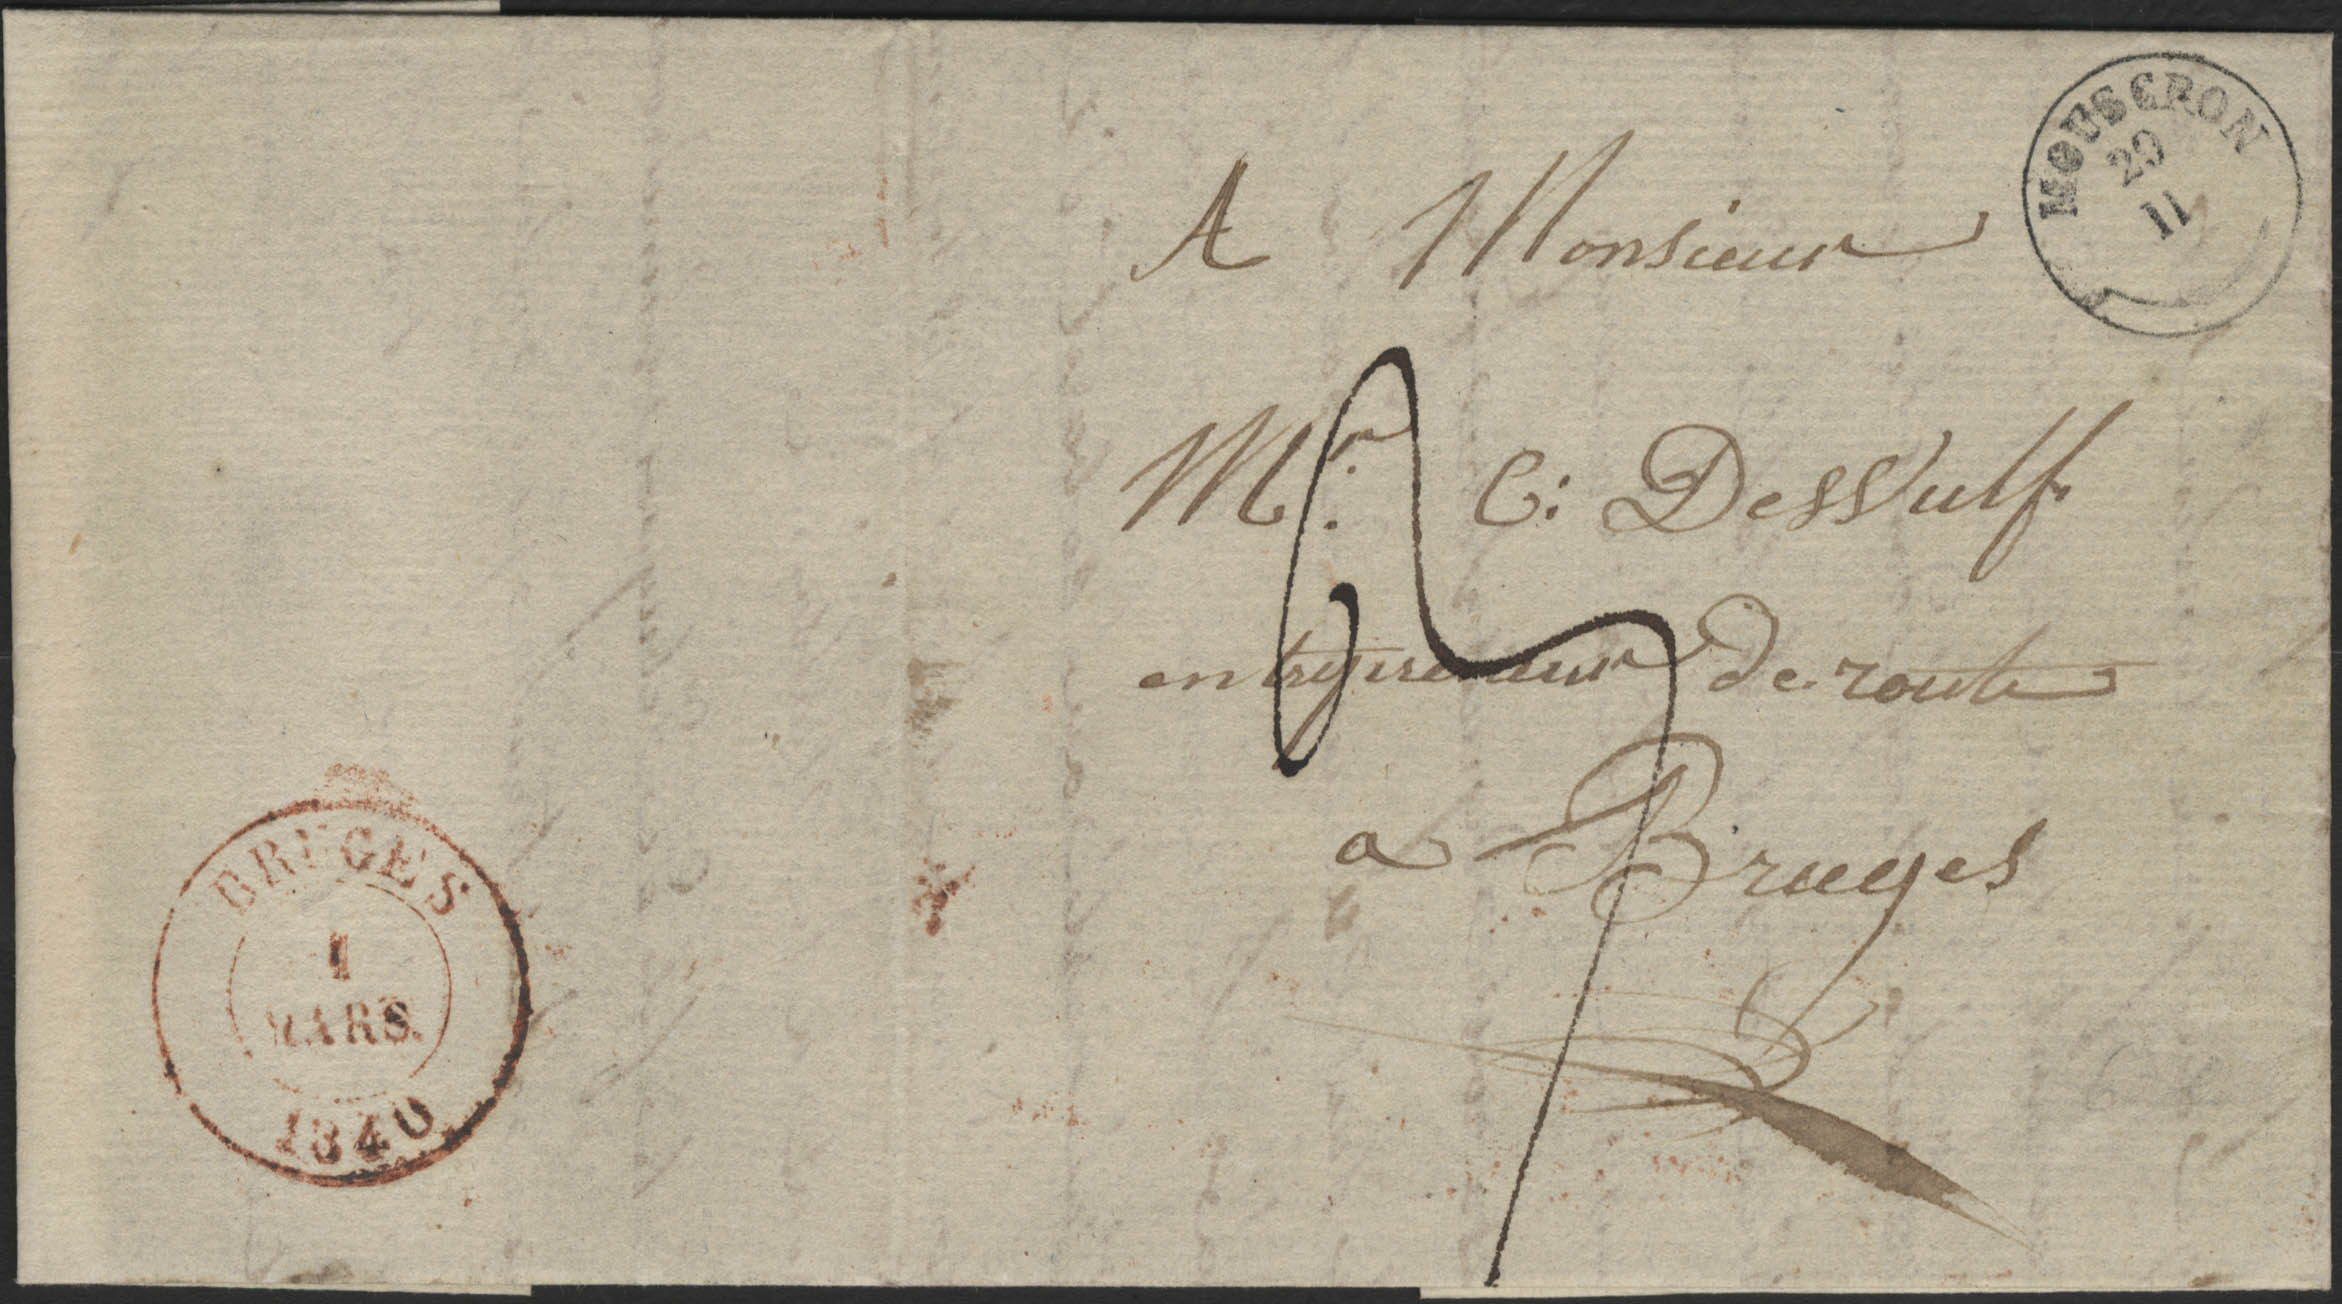 MOUSCRON
29
II
A Monsieur
Mr. C: DeWulf
entrepreneur de route
a Bruges
BRUGES
1
MARS.
1840